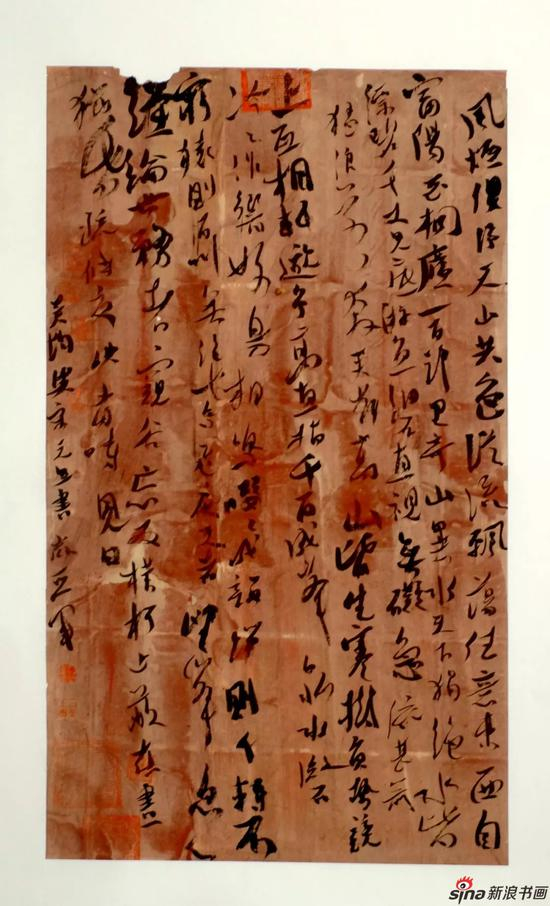 風煙俱淨天山共色從流飄蕩任意東西自
富陽至桐廬一百許里奇山異水天下獨絕水皆
縹碧千丈見底游魚細石直視無礙急湍甚箭
猛浪若奔夾岸高山皆生寒樹負勢競
上互相軒邈爭高直指千百成峰泉水激石
泠泠作響好鳥相鳴嚶嚶成韻蟬則千轉不
窮猿則百叫無絕鳶飛戾天者望峰息心
經綸世務者窺谷忘反橫柯上蔽在晝
猶昏疏條交映有時見日
吳均與宋元思書
sina新浪书画